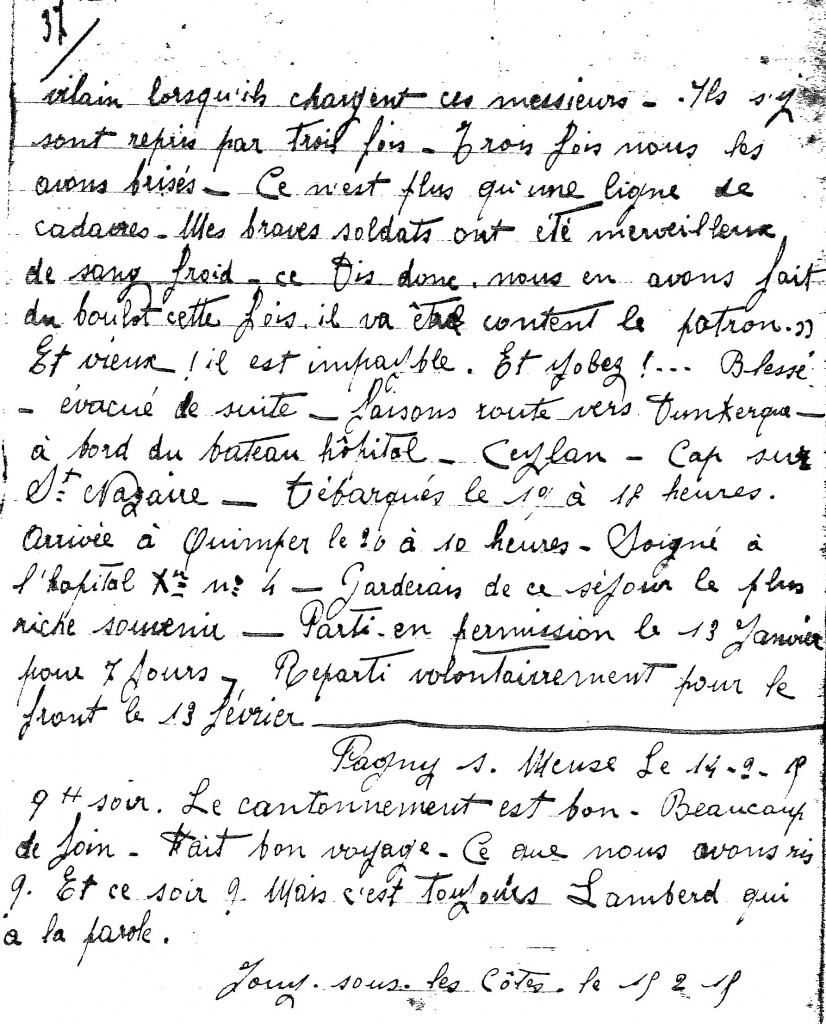 37/
vilain lorsqu'ils chargent ces messieurs - Ils s'y
sont repris par trois fois - Trois fois nous les
avons brisés - Ce n'est plus qu'une ligne de
cadavres - Mes braves soldats ont été merveilleux
de sang froid - ce Dis donc. nous en avons fait
du boulot cette fois. il va être content le patron.»
Et vieux ! il est impayable. Et Yobez !... Blessé
- évacué de suite - Faisons route vers Dunkerque -
à bord du bateau hôpital - Ceylan - Cap sur
St Nazaire - Débarqués le 19 à 18 heures.
Arrivée à Quimper le 20 à 10 heures - Soigné à
l'hopital Xre no 4 - Garderais de ce séjour le plus
riche souvenir - Parti en permission le 13 Janvier
pour 7 jours - Reparti volontairement pour le
front le 13 février
Pagny s. Meuse Le 14-2-15
9 H soir. Le cantonnement est bon - Beaucoup
de foin - Fait bon voyage - Ce que nous avons ris
?. Et ce soir ?. Mais c'est toujours Lamberd qui
a la parole.
Jouy. sous. les Côtes. le 15 2 15